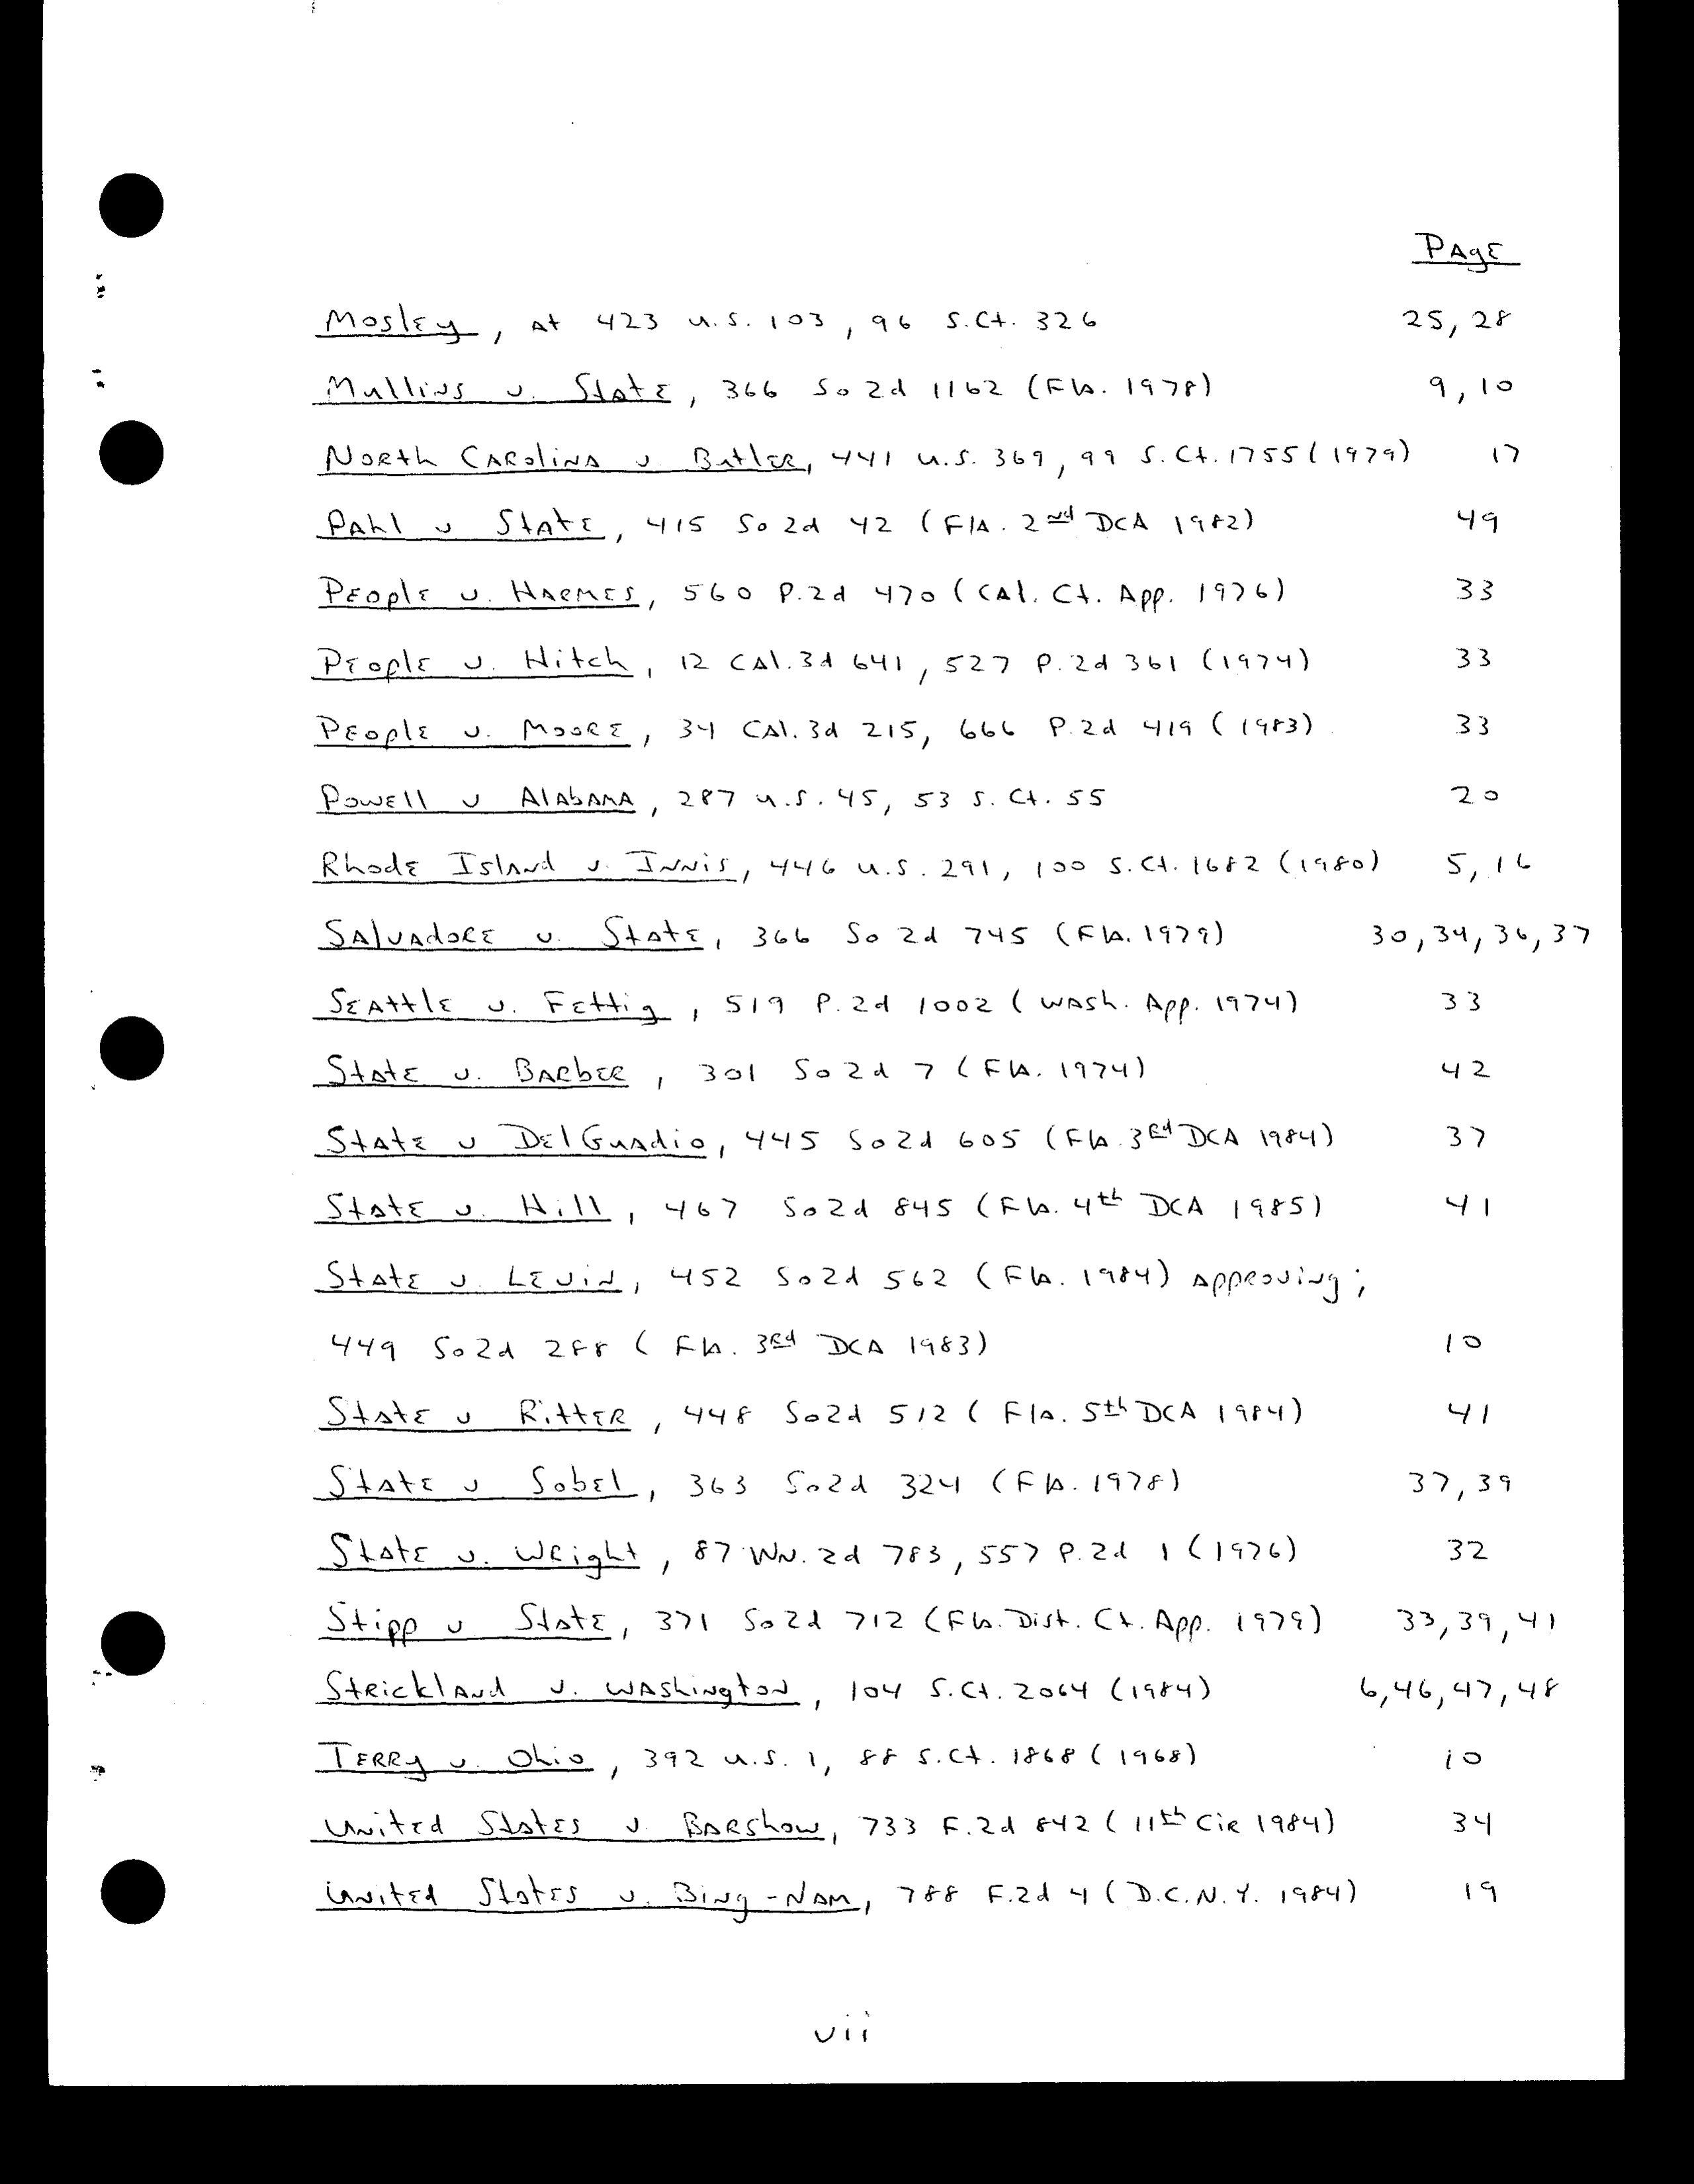 PAGE
Mosley, at 423 U.S. 103, 96 S.Ct. 326 25, 28
Mullins v. State, 366 So 2d 1162 (Fla. 1978) 9, 10
North Carolina v. Butler, 441 U.S. 369, 99 S.Ct. 1755 (1979) 17
Pahl v State, 415 So 2d 42 (Fla. 2nd DCA 1982) 49
People v. Harmes, 560 P.2d 470 (Cal. Ct. App. 1976) 33
People v. Hitch, 12 Cal.3d 641, 527 P.2d 361 (1974) 33
People v. Moore, 34 Cal.3d 215, 666 P.2d 419 (1983) 33
Powell v Alabama, 287 U.S. 45, 53 S.Ct. 55 20
Rhode Island v. Innis, 446 U.S. 291, 100 S.Ct. 1682 (1980) 5, 16
Salvadore v. State, 366 So 2d 745 (Fla. 1979) 30, 34, 36, 37
Seattle v. Fettig, 519 P.2d 1002 (Wash. App. 1974) 33
State v. Barber, 301 So 2d 7 (Fla. 1974) 42
State v DelGuadio, 445 So2d 605 (Fla 3rd DCA 1984) 37
State v. Hill, 467 So2d 845 (Fla. 4th DCA 1985) 41
State v. Levin, 452 So2d 562 (Fla. 1984) approving;
449 So2d 288 (Fla. 3rd DCA 1983) 10
State v Ritter, 448 So2d 512 (Fla. 5th DCA 1984) 41
State v Sobel, 363 So2d 324 (Fla. 1978) 37, 39
State v. Wright, 87 Wn. 2d 783, 557 P.2d 1 (1976) 32
Stipp v State, 371 So2d 712 (Fla. Dist. Ct. App. 1979) 33, 39, 41
Strickland v. Washington, 104 S.Ct. 2064 (1984) 6, 46, 47, 48
Terry v. Ohio, 392 U.S. 1, 88 S.Ct. 1868 (1968) 10
United States v. Barshow, 733 F.2d 842 (11th Cir 1984) 34
United States v. Bing-Nam, 788 F.2d 4 (D.C.N.Y. 1984) 19
vii